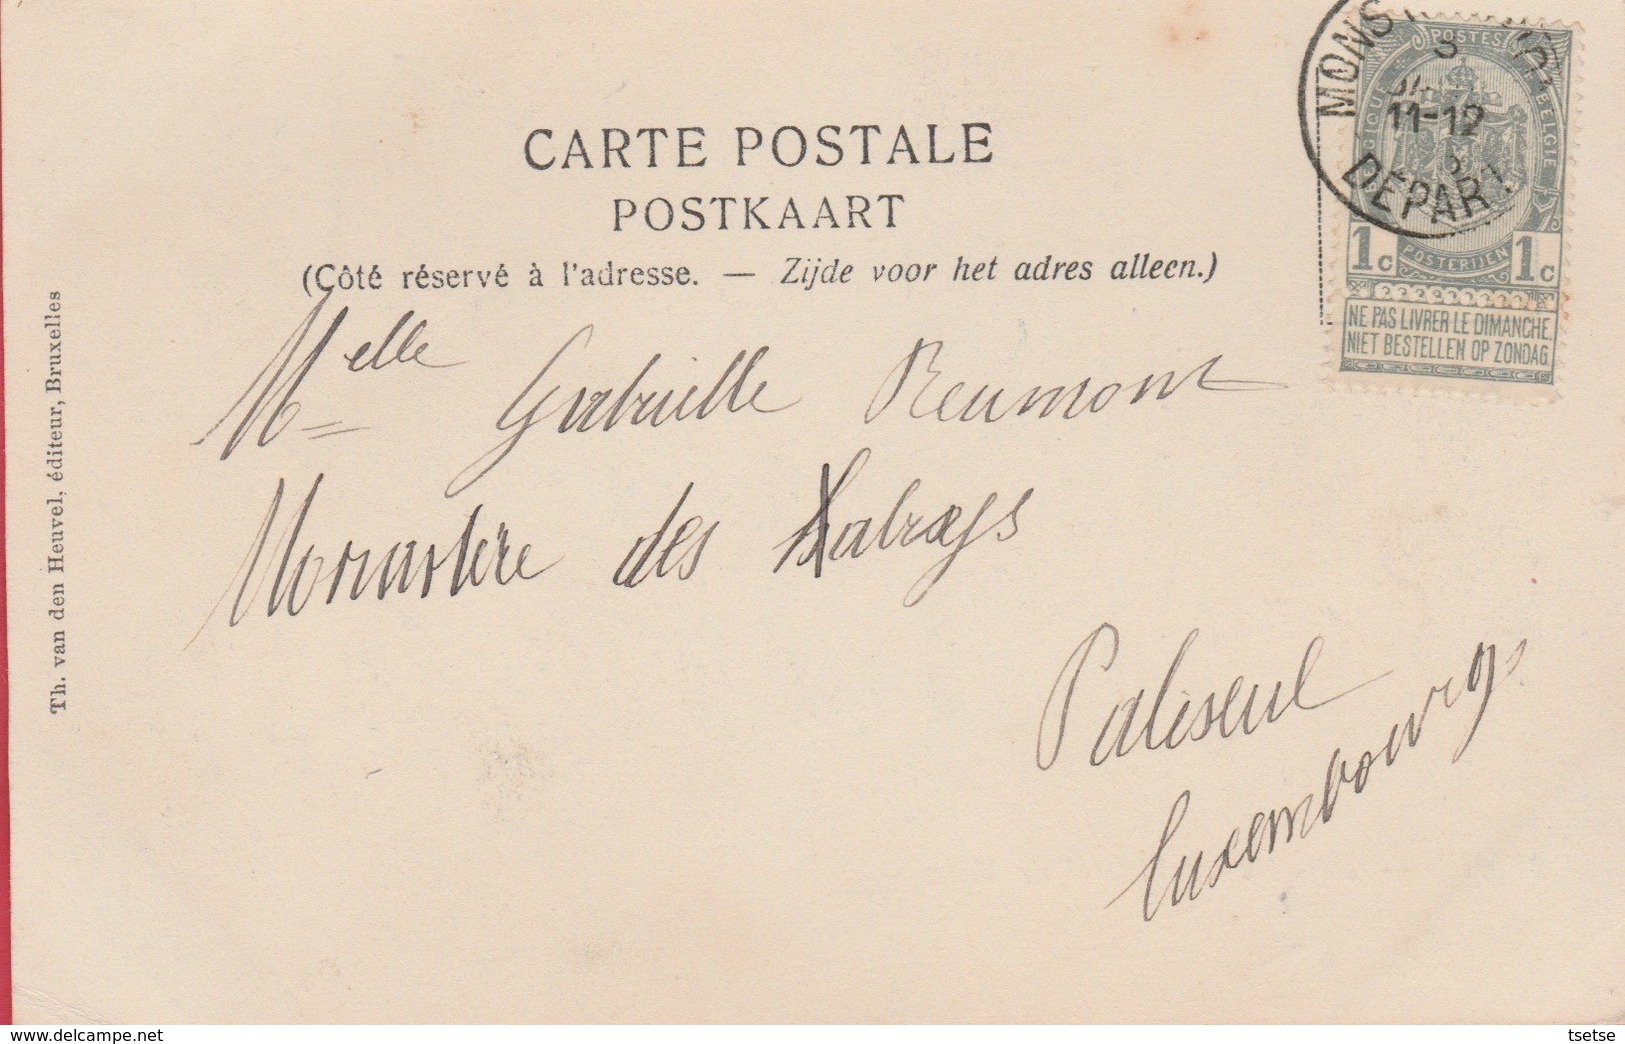 CARTE POSTALE
POSTKAART
(Côté réservé à l'adresse. — Zijde voor het adres alleen.)
Th. van den Heuvel, éditeur, Bruxelles
MONS
8
11-12
DÉPART
POSTES
BELGIE
1c POSTERIJEN 1c
NE PAS LIVRER LE DIMANCHE.
NIET BESTELLEN OP ZONDAG.
Melle Gabrielle Reumont
Monastère des
Paliseul
Luxembourg
delcampe.net
tsetse